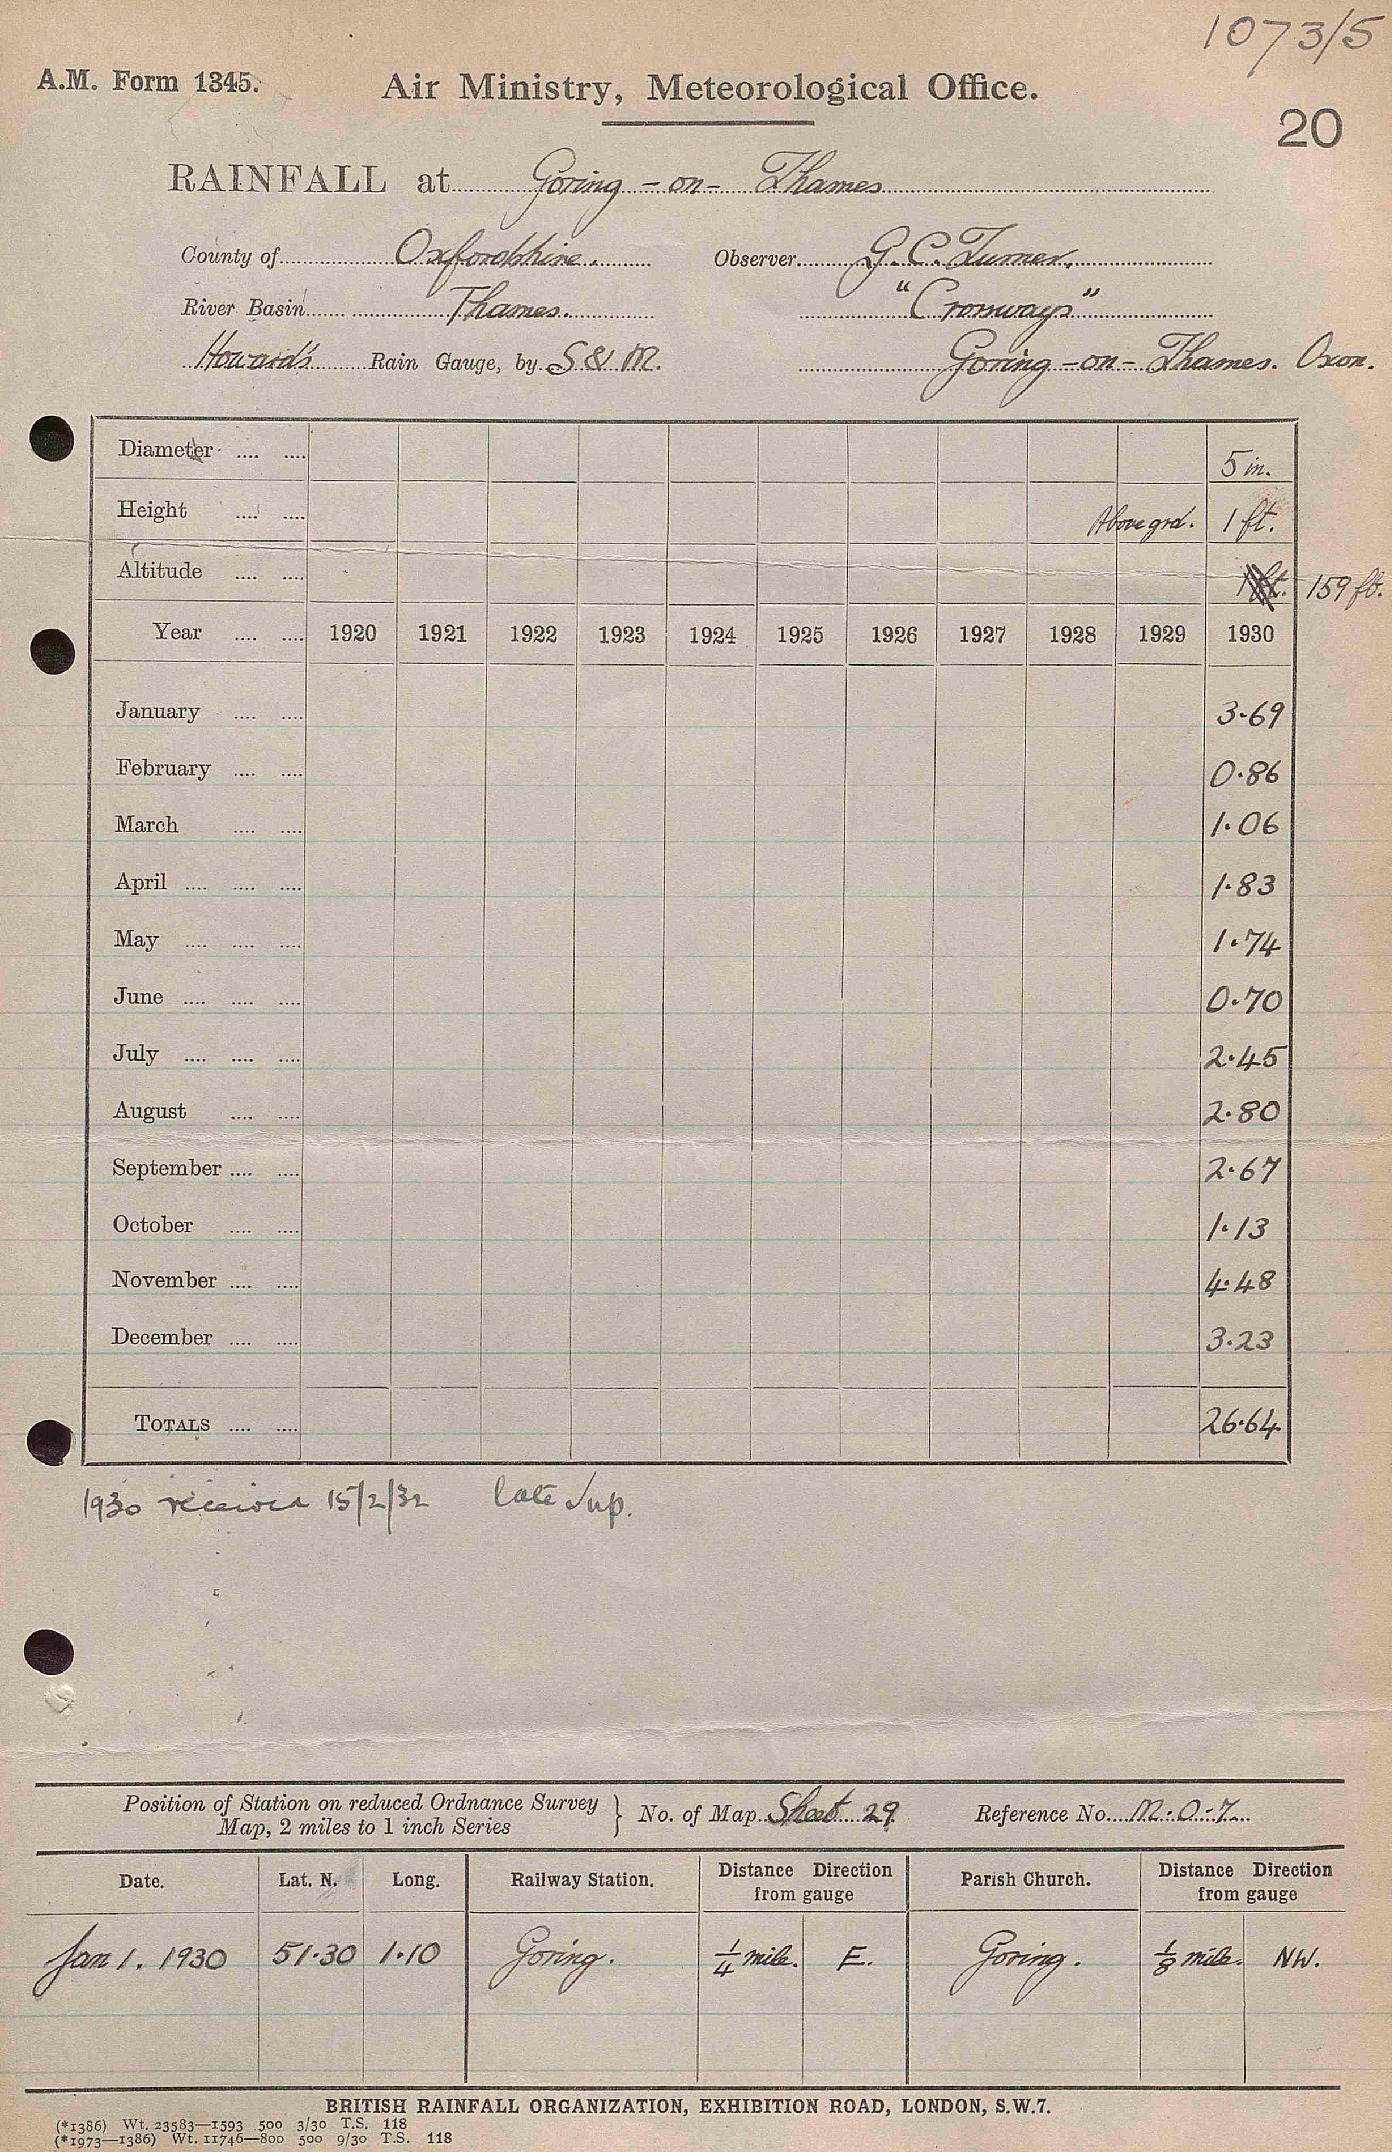 1073/5
A.M. Form 1345.
Air Ministry, Meteorological Office.
20
RAINFALL at Goring-on-Thames
County of Oxfordshire. Observer G.C. Turner.
River Basin Thames. "Cromways"
Howard's Rain Gauge, by S & M. Goring-on-Thames. Oxon.
Diameter .... .... 5 in.
Height .... .... Above grd. 1 ft.
Altitude .... .... 1 ft. 159 ft.
Year .... .... 1920 1921 1922 1923 1924 1925 1926 1927 1928 1929 1930
January .... .... 3.69
February .... .... 0.86
March .... .... 1.06
April .... .... .... 1.83
May .... .... .... 1.74
June .... .... .... 0.70
July .... .... .... 2.45
August .... .... 2.80
September .... .... 2.67
October .... .... 1.13
November .... .... 4.48
December .... .... 3.23
TOTALS .... .... 26.64
1930 received 15/2/32 late sup.
Position of Station on reduced Ordnance Survey Map, 2 miles to 1 inch Series } No. of Map Sheet 29 Reference No. M.O.7
Date. Lat. N. Long. Railway Station. Distance Direction from gauge Parish Church. Distance Direction from gauge
Jan 1. 1930 51.30 1.10 Goring. 1/4 mile. E. Goring. 1/8 mile. NW.
BRITISH RAINFALL ORGANIZATION, EXHIBITION ROAD, LONDON, S.W.7.
(*1386) Wt. 23583—1593 500 3/30 T.S. 118
(*1973—1386) Wt. 11746—800 500 9/30 T.S. 118